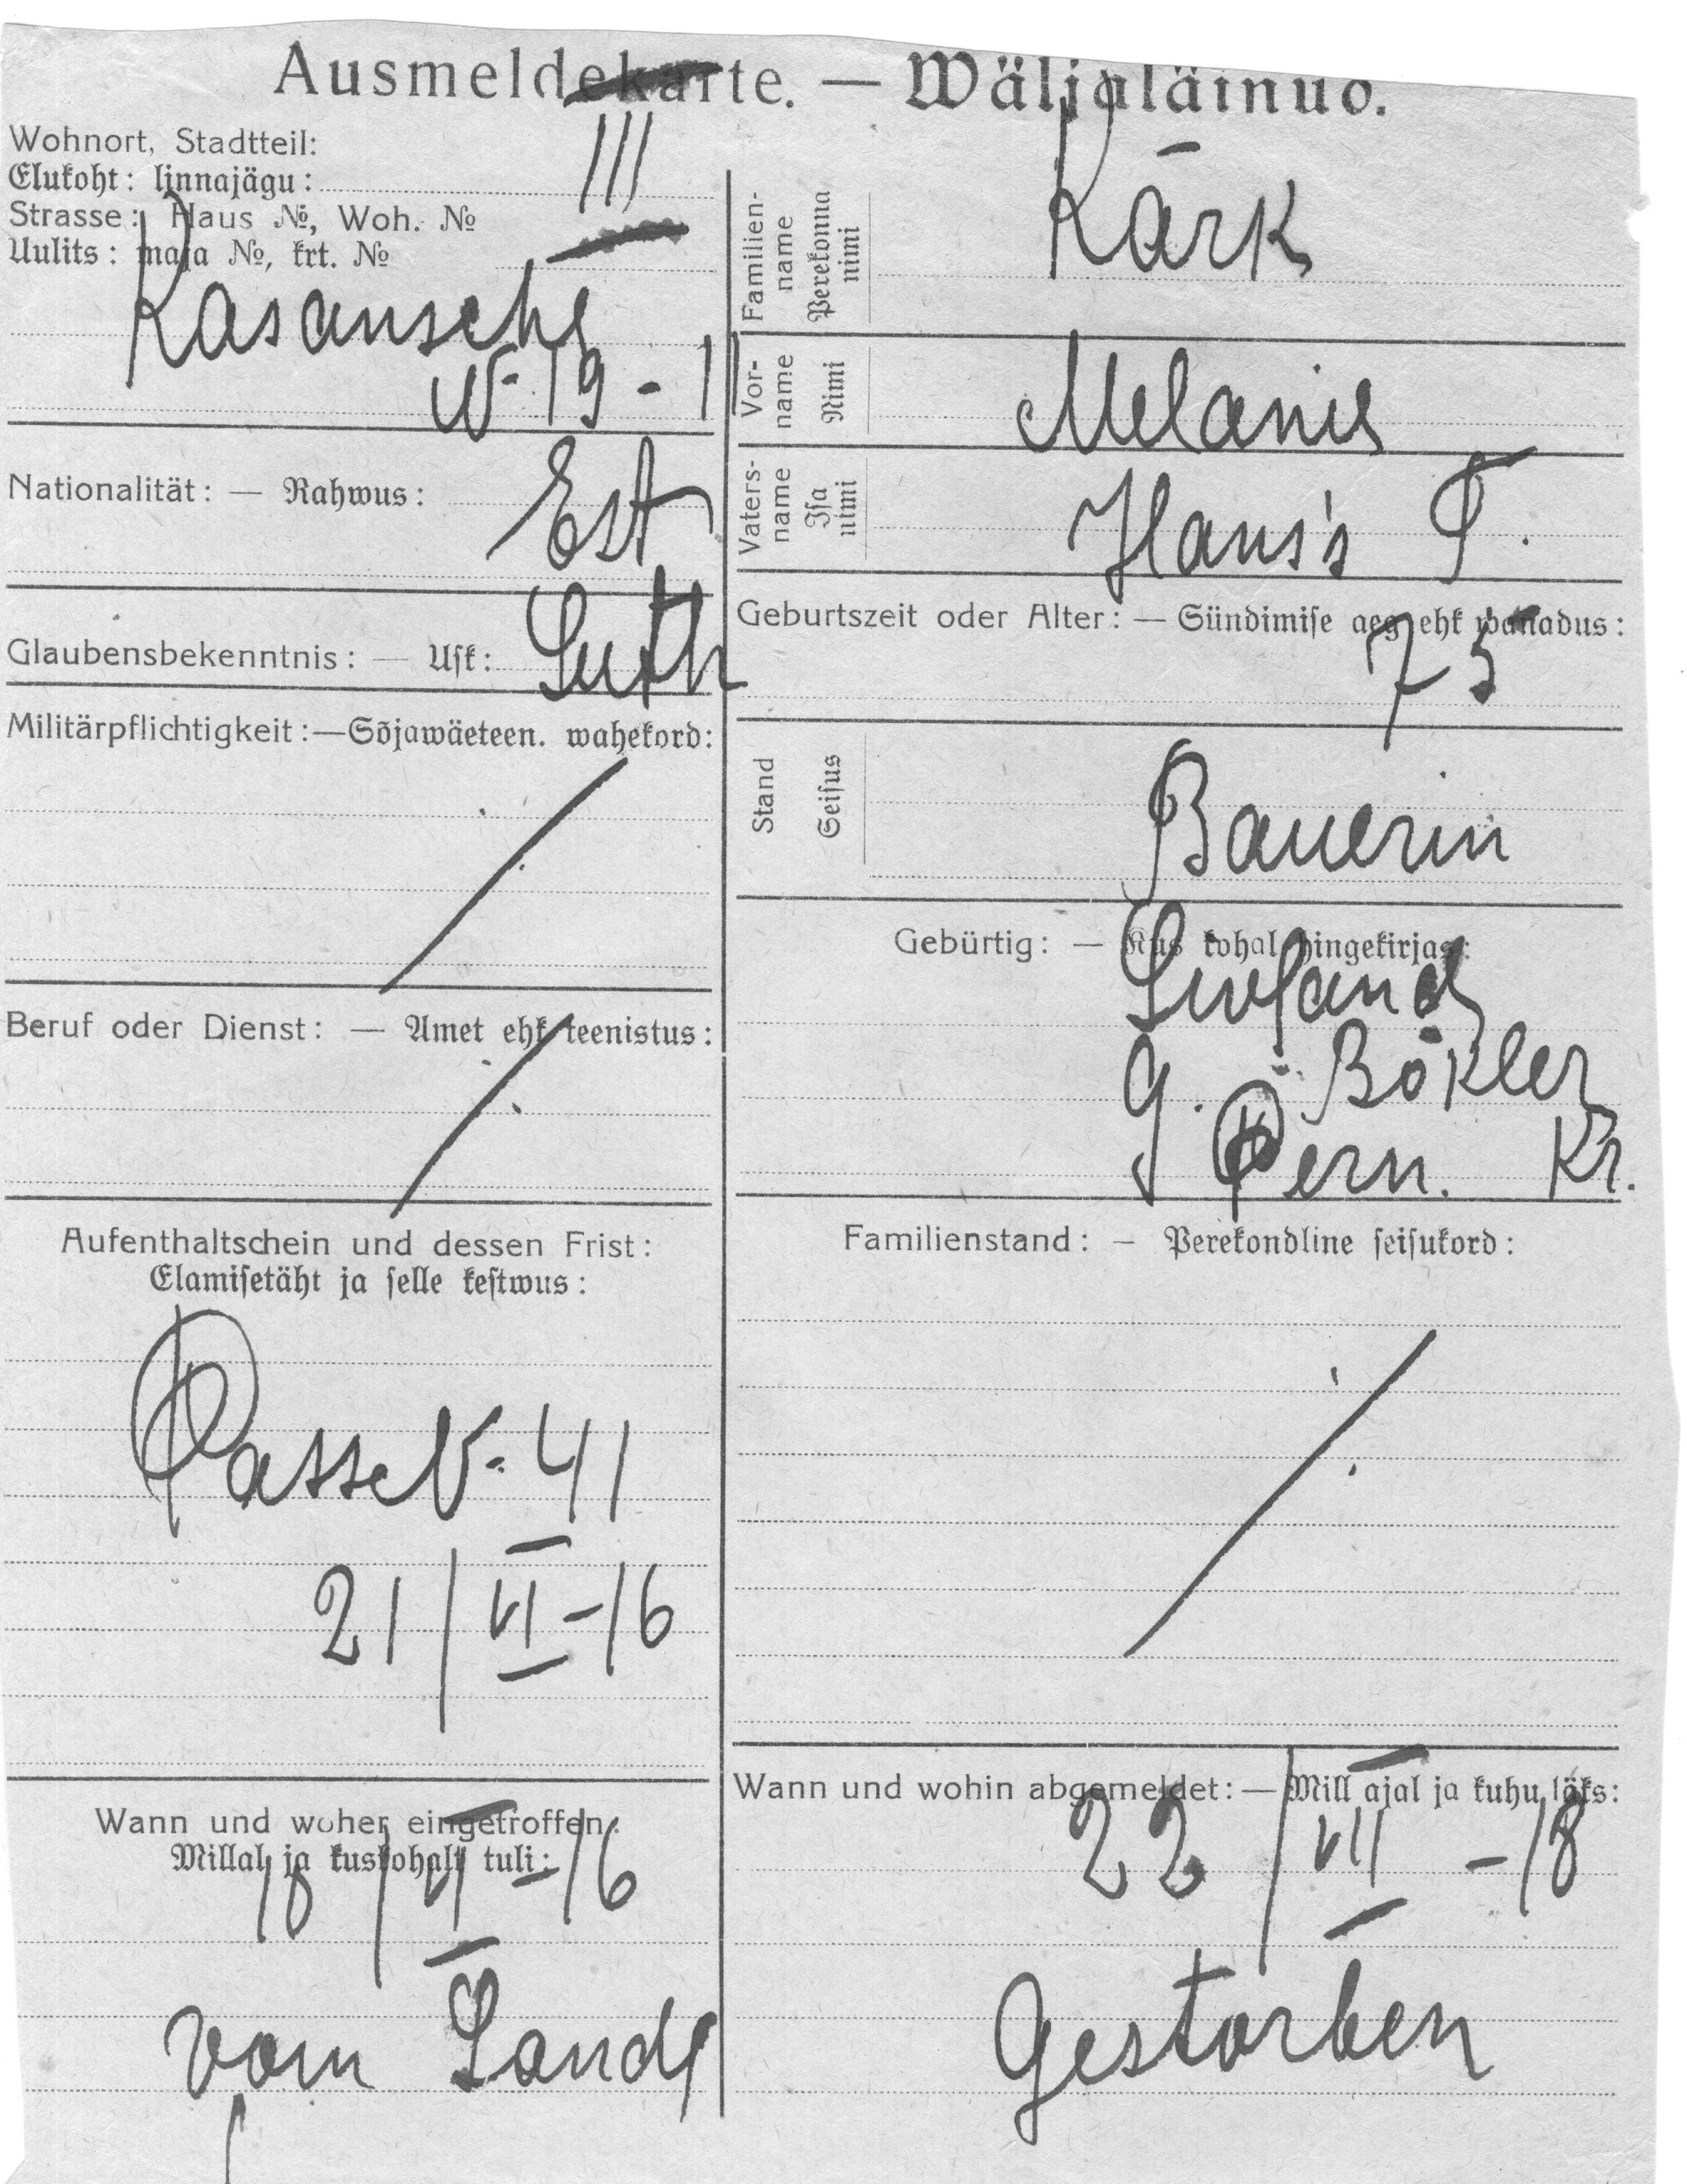 Ausmeldekarte. — Wäljaläinuo.
Wohnort, Stadtteil:
Elukoht: linnajägu:
III
Strasse: Haus №, Woh. №
Uulits: maja №, krt. №
Kasansche
№ 19 - 1
Nationalität: — Rahwus:
Est
Glaubensbekenntnis: — Usk:
Luth
Militärpflichtigkeit:—Sõjawäeteen. wahekord:
Beruf oder Dienst: — Amet ehk teenistus:
Aufenthaltschein und dessen Frist:
Elamisetäht ja selle kestwus:
Passe №. 41
21/VI-16
Wann und woher eingetroffen:
Millal ja kuskohalt tuli:
18/VI-16
vom Lande
Familien-
name
Perekonna
nimi
Kärk
Vor-
name
Nimi
Melanie
Vaters-
name
Isa
nimi
Hans's T.
Geburtszeit oder Alter: — Sündimise aeg ehk wanadus:
75
Stand
Seisus
Bauerin
Gebürtig: — Kus kohal hingekirjas:
Livland
G. Bökler
G Pern. Kr.
Familienstand: — Perekondline seisukord:
Wann und wohin abgemeldet: — Mill ajal ja kuhu läks:
22/VII-18
Gestorben